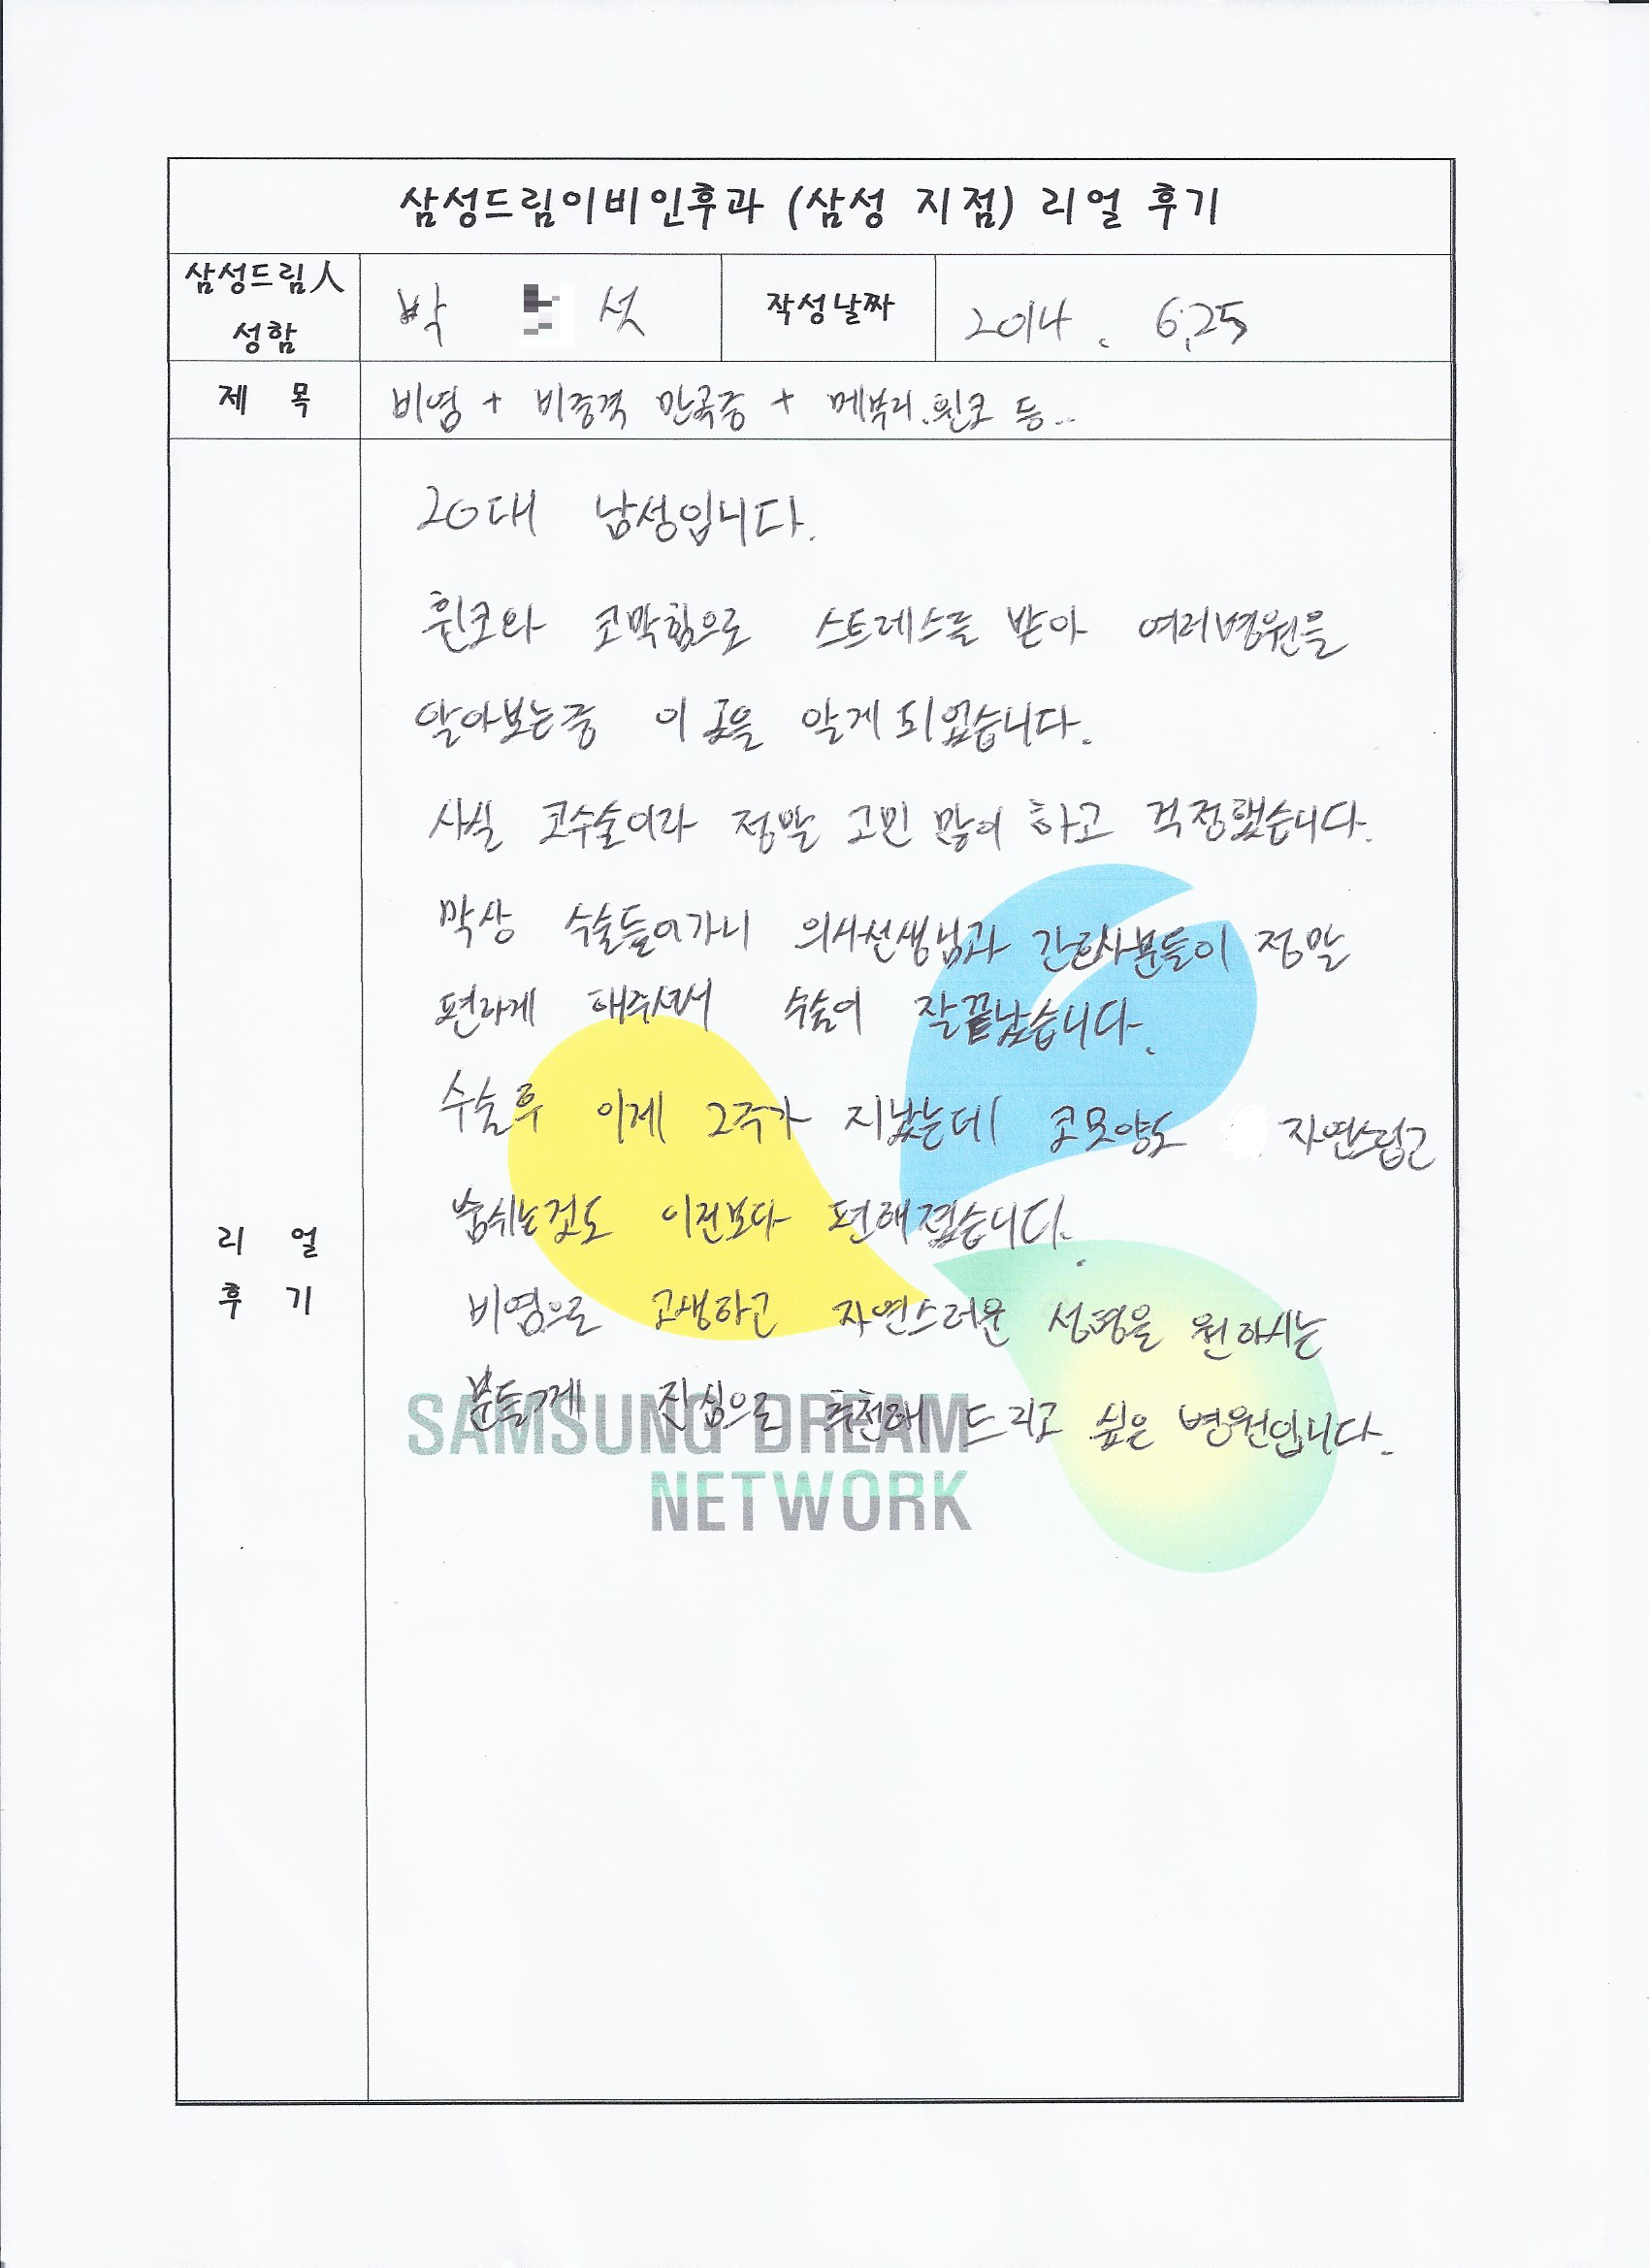 삼성드림이비인후과 (삼성 지점) 리얼 후기
삼성드림人 성함
박 석
작성날짜
2014. 6.25
제 목
비염 + 비중격 만곡증 + 메부리.휜코 등..
리 얼
후 기
20대 남성입니다.
휜코와 코막힘으로 스트레스를 받아 여러병원을
알아보는중 이 곳을 알게 되었습니다.
사실 코수술이라 정말 고민 많이 하고 걱정했습니다.
막상 수술들어가니 의사선생님과 간호사분들이 정말
편하게 해주셔서 수술이 잘끝났습니다.
수술후 이제 2주가 지났는데 코모양도 자연스럽고
숨쉬는것도 이전보다 편해졌습니다.
비염으로 고생하고 자연스러운 성형을 원하시는
분들께 진심으로 추천해 드리고 싶은 병원입니다.
SAMSUNG DREAM
NETWORK